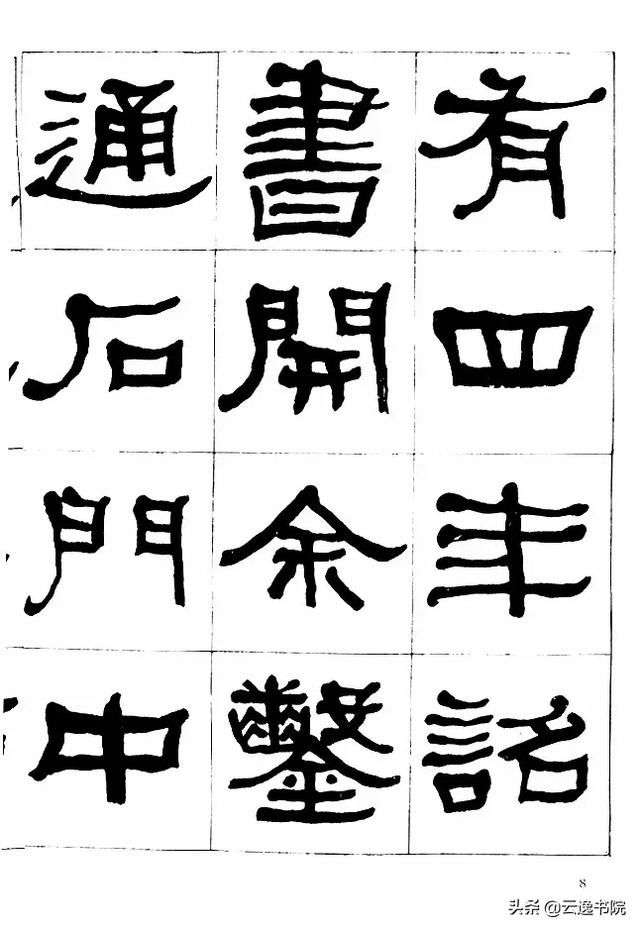 有四年詔
書開余鑿
通石門中
8
头条 @云逸书院